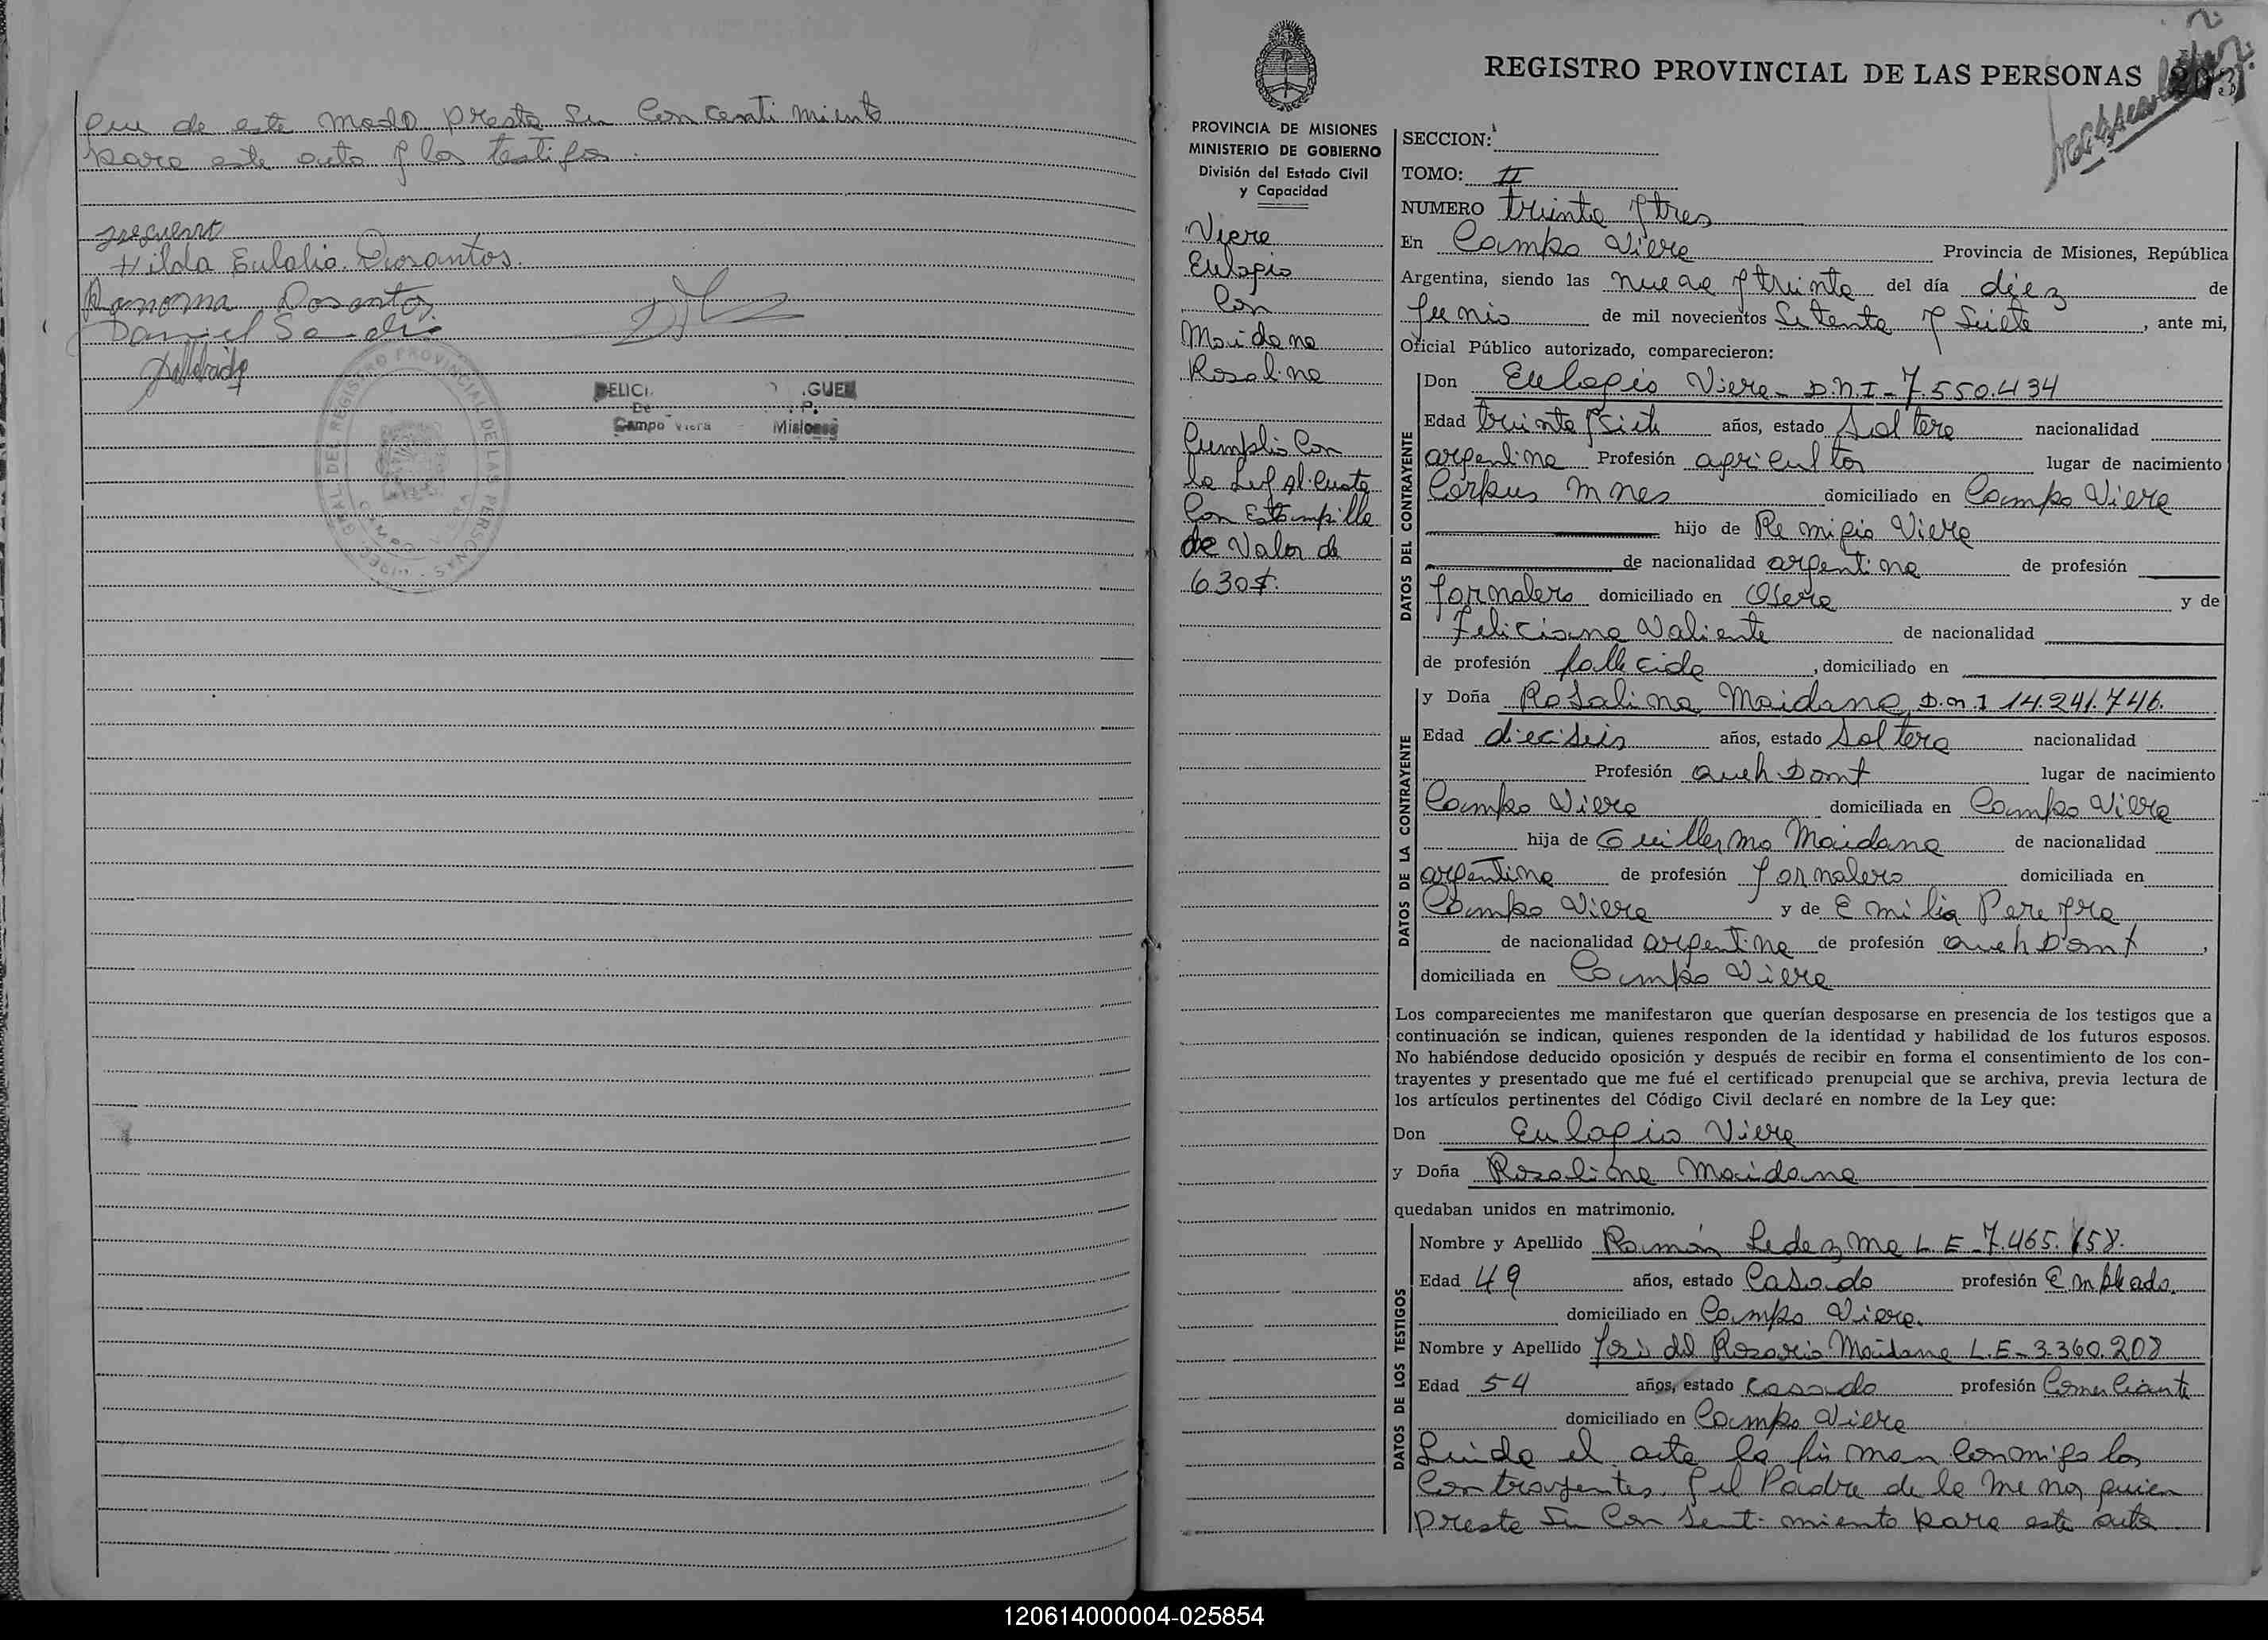 que de este modo presta su concentimiento
para este acto y los testigos.
Hilda Eulalia Dosantos.
Ramona Dosantos
Daniel
REGISTRO PROVINCIAL DE LAS PERSONAS
Campo Viera - Misiones
REGISTRO PROVINCIAL DE LAS PERSONAS
PROVINCIA DE MISIONES
MINISTERIO DE GOBIERNO
División del Estado Civil
y Capacidad
Viera
Eulogio
Con
Maidana
Rosalina
Cumplio Con
la Ley Al. Cuota
Con Estampilla
de Valor de
630$.
SECCION:
TOMO: II
NUMERO treinta y tres
En Campo Viera Provincia de Misiones, República
Argentina, siendo las nueve y treinta del día diez de
Junio de mil novecientos Setenta y Siete, ante mi,
Oficial Público autorizado, comparecieron:
DATOS DEL CONTRAYENTE
Don Eulogio Viera - D.N.I - 7.550.434
Edad treinta y Siete años, estado Soltero nacionalidad
argentina Profesión agricultor lugar de nacimiento
Corpus Mnes domiciliado en Campo Viera
hijo de Remigio Viera
de nacionalidad argentina de profesión
Jornalero domiciliado en Obera y de
Feliciana Valiente de nacionalidad
de profesión fallecida, domiciliado en
DATOS DE LA CONTRAYENTE
y Doña Rosalina Maidana D.N.I 14.241.746.
Edad dieciseis años, estado Soltera nacionalidad
Profesión Queh Domt lugar de nacimiento
Campo Viera domiciliada en Campo Viera
hija de Guillermo Maidana de nacionalidad
argentina de profesión Jornalero domiciliada en
Campo Viera y de Emilia Pereyra
de nacionalidad argentina de profesión Queh Domt,
domiciliada en Campo Viera
Los comparecientes me manifestaron que querían desposarse en presencia de los testigos que a
continuación se indican, quienes responden de la identidad y habilidad de los futuros esposos.
No habiéndose deducido oposición y después de recibir en forma el consentimiento de los con-
trayentes y presentado que me fué el certificado prenupcial que se archiva, previa lectura de
los artículos pertinentes del Código Civil declaré en nombre de la Ley que:
Don Eulogio Viera
y Doña Rosalina Maidana
quedaban unidos en matrimonio.
DATOS DE LOS TESTIGOS
Nombre y Apellido Ramón Ledezma L E - 7.465.158.
Edad 49 años, estado Casado profesión Empleado.
domiciliado en Campo Viera.
Nombre y Apellido José del Rosario Maidana L.E - 3.360.208
Edad 54 años, estado casado profesión Comerciante
domiciliado en Campo Viera
Leida el acta la firman conmigo los
Contrayentes y el Padre de la menor quien
preste su Consentimiento para este acto
120614000004-025854